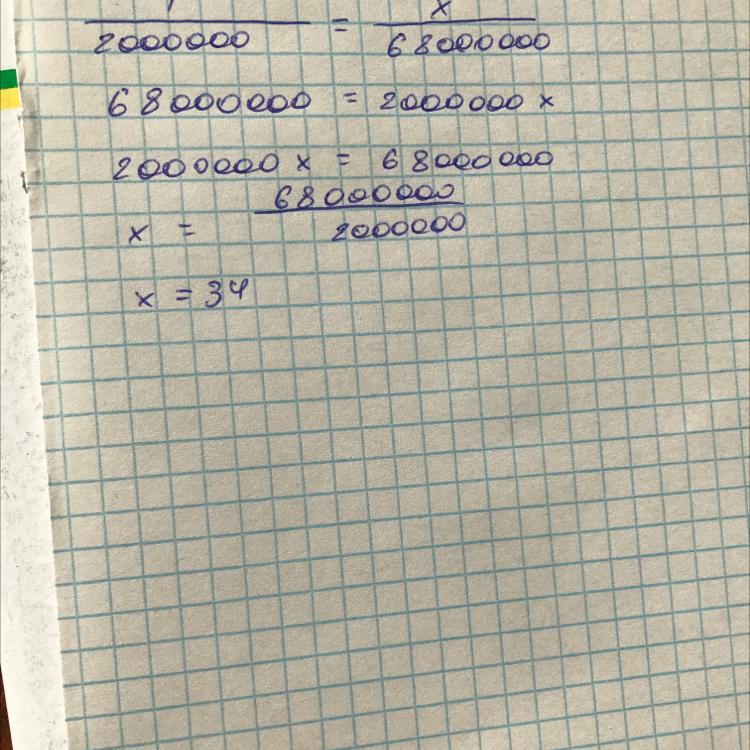 / 2000000 = x / 68000000
68000000 = 2000000 x
2000000 x = 68000000
x = 68000000 / 2000000
x = 34